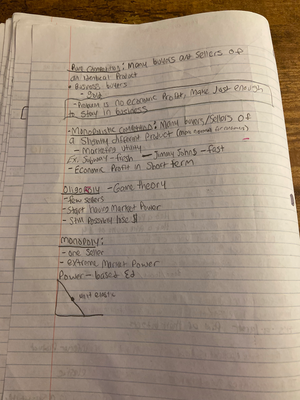 Pure Competition: Many buyers and sellers of
an identical Product
• Business buyers
- Gold
- Problem is no economic Profit, make Just enough
to stay in business
- Monopolistic Competition: Many Buyers/Sellers of
a slightly different Product
- Marketing utility
Ex. Subway - fresh - Jimmy Johns - fast
- Economic Profit in Short term
Oligopoly - Game theory
- few sellers
- Market Power
- Still Possibly lose $
Monopoly:
- one seller
- extreme Market Power
Power - based